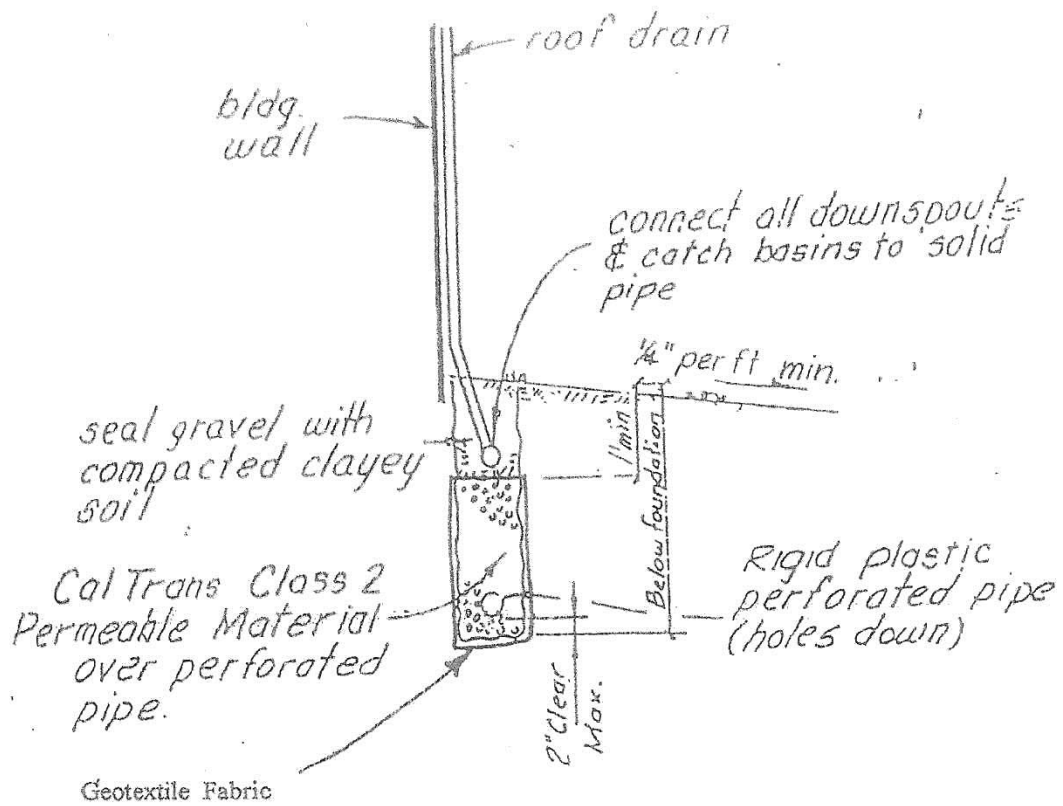 roof drain
bldg.
wall
connect all downspouts
& catch basins to solid
pipe
1/4" per ft min.
seal gravel with
compacted clayey
soil
1' min
Below foundation
Cal Trans Class 2
Permeable Material
over perforated
pipe.
Rigid plastic
perforated pipe
(holes down)
2" Clear
Max.
Geotextile Fabric